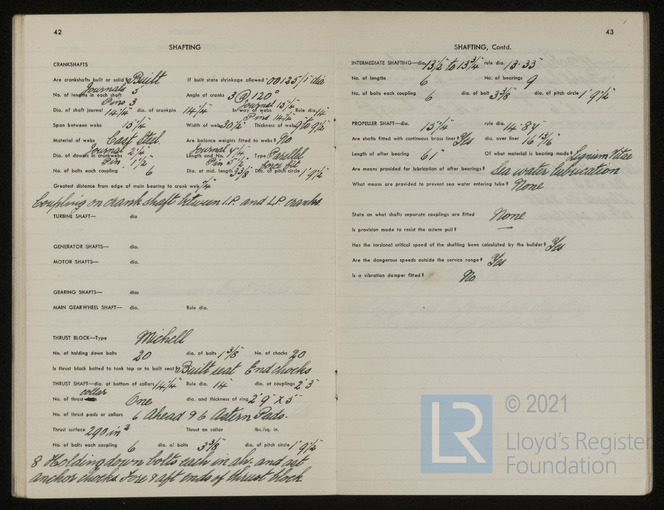 42
SHAFTING
CRANKSHAFTS
Are crankshafts built or solid Built If built state shrinkage allowed .00135/1" dia
Journals 3
No. of lengths in each shaft Angle of cranks 3 @ 120°
Pins 3 Journal 15 1/2
Dia. of shaft journal 14 1/4 dia. of crankpin 14 1/4 In way of webs Rule dia. 14
Span between webs 15 1/2 Width of web 30 1/2 Thickness of web 9 1/2
Material of webs Cast Steel Are balance weights fitted to webs? No
Journal
Dia. of dowels in crankwebs Length and No. Type Parallel
Pin 1 1/2 force fit
No. of bolts each coupling 6 Dia. at mid. length 3 3/8 Dia. of pitch circle 1' 9 1/2
Greatest distance from edge of main bearing to crank web 1/4
Coupling on crank shaft between I.P. and L.P. cranks
TURBINE SHAFT— dia.
GENERATOR SHAFT— dia.
MOTOR SHAFT— dia.
GEARING SHAFTS— dias
MAIN GEARWHEEL SHAFT— dia. Rule dia.
THRUST BLOCK—Type Michell
No. of holding down bolts 20 dia. of bolts 1 3/8 No. of chocks 20
Is thrust block bolted to tank top or to built seat? Built seat End chocks
THRUST SHAFT—dia. at bottom of collars 14 1/4 Rule dia. 14 dia. at couplings 2' 3"
collar
No. of thrust One dia. and thickness of ring 2' 9" x 5"
No. of thrust pads or collars 6 Ahead & 6 Astern Pads.
Thrust surface 290 in² Thrust on collar lbs./sq. in.
No. of bolts each coupling 6 dia. of bolts 3 3/8 dia. of pitch circle 1' 9 1/2
8 Holding down bolts each in ah. and ast
anchor chocks Fore & aft ends of thrust block
43
SHAFTING, Contd.
INTERMEDIATE SHAFTING—dia. 13 1/2 to 13 3/4 rule dia. 13.33"
No. of lengths 6 No. of bearings 9
No. of bolts each coupling 6 dia. of bolt 3 3/8 dia. of pitch circle 1' 9 1/2
PROPELLER SHAFT—dia. 15 1/4 rule dia. 14.84"
Are shafts fitted with continuous brass liner? Yes dia. over liner 16 13/16
Length of after bearing 61" Of what material is bearing made? Lignum Vitae
Are means provided for lubrication of after bearings? Sea water lubrication
What means are provided to prevent sea water entering tube? None
State on what shafts separate couplings are fitted None
Is provision made to resist the astern pull? —
Has the torsional critical speed of the shafting been calculated by the builder? Yes
Are the dangerous speeds outside the service range? Yes
Is a vibration damper fitted? No
© 2021
LR
Lloyd's Register
Foundation